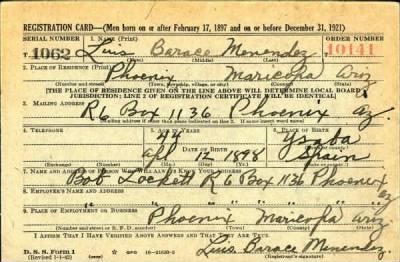 REGISTRATION CARD—(Men born on or after February 17, 1897 and on or before December 31, 1921)
SERIAL NUMBER 1. NAME (Print) ORDER NUMBER
T 1062 Luis Barace Menendez 10141
(First) (Middle) (Last)
2. PLACE OF RESIDENCE (Print)
Phoenix Maricopa Ariz
(Number and street) (Town, township, village, or city) (County) (State)
[THE PLACE OF RESIDENCE GIVEN ON THE LINE ABOVE WILL DETERMINE LOCAL BOARD
JURISDICTION; LINE 2 OF REGISTRATION CERTIFICATE WILL BE IDENTICAL]
3. MAILING ADDRESS
R6 Box 1136 Phoenix Az.
[Mailing address if other than place indicated on line 2. If same insert word same]
4. TELEPHONE 5. AGE IN YEARS 6. PLACE OF BIRTH
44 Ysaba
DATE OF BIRTH (Town or county)
Apr 12 1898 Spain
(Exchange) (Number) (Mo.) (Day) (Yr.) (State or country)
7. NAME AND ADDRESS OF PERSON WHO WILL ALWAYS KNOW YOUR ADDRESS
Bob Lockett R6 Box 1136 Phoenix Az
8. EMPLOYER'S NAME AND ADDRESS
" " " " " "
9. PLACE OF EMPLOYMENT OR BUSINESS
Phoenix Maricopa Ariz.
(Number and street or R. F. D. number) (Town) (County) (State)
I AFFIRM THAT I HAVE VERIFIED ABOVE ANSWERS AND THAT THEY ARE TRUE.
D. S. S. Form 1
(Revised 1-1-42) GPO 16—21630-2 Luis Barace Menendez